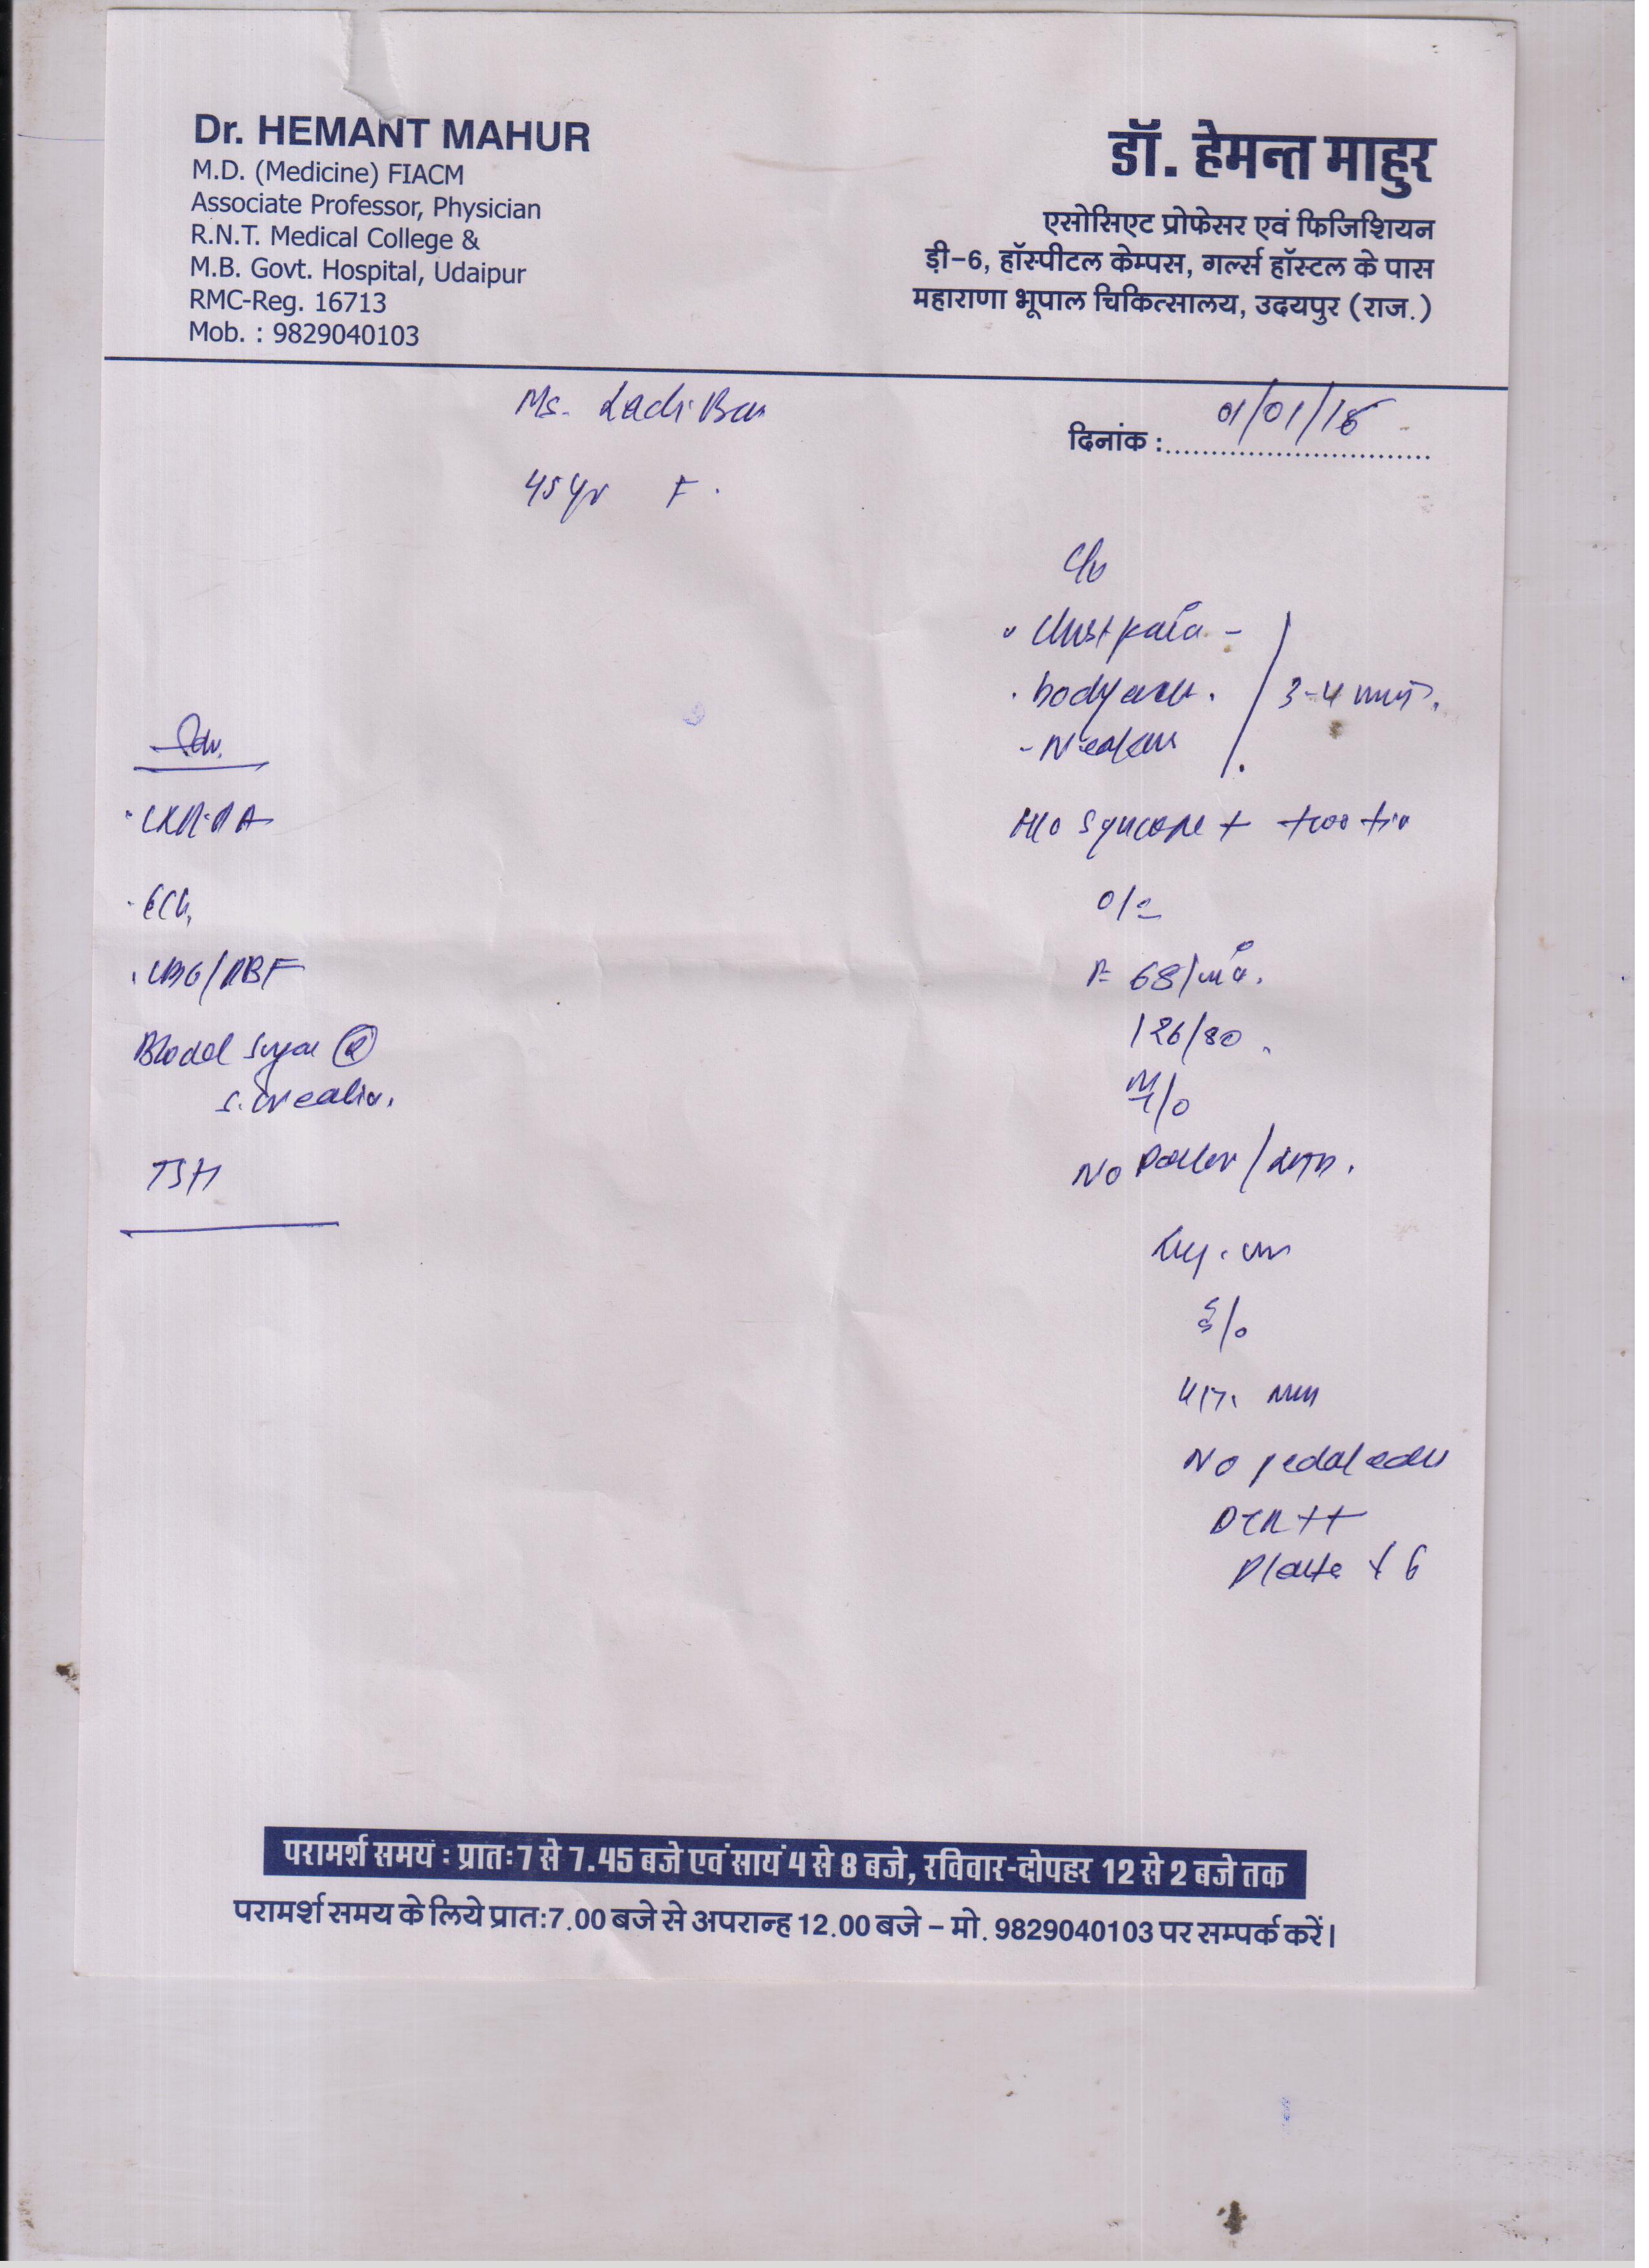 Dr. HEMANT MAHUR
M.D. (Medicine) FIACM
Associate Professor, Physician
R.N.T. Medical College &
M.B. Govt. Hospital, Udaipur
RMC-Reg. 16713
Mob. : 9829040103
डॉ. हेमन्त माहुर
एसोसिएट प्रोफेसर एवं फिजिशियन
ड़ी-6, हॉस्पीटल केम्पस, गर्ल्स हॉस्टल के पास
महाराणा भूपाल चिकित्सालय, उदयपुर (राज.)
Ms. Ladi Bai
दिनांक : 01/01/16
45 yr F.
C/o
Chest pain -
body ache.
3-4
Adv.
CXR-PA
ECG
CBC/PBF
Blood Sugar (R)
S. Creatin.
TSH
H/o Syncope +
O/E
P- 68/min.
126/80.
No Pallor /
S/o
No pedal edema
DTR ++
परामर्श समय : प्रातः 7 से 7.45 बजे एवं सायं 4 से 8 बजे, रविवार-दोपहर 12 से 2 बजे तक
परामर्श समय के लिये प्रातः 7.00 बजे से अपरान्ह 12.00 बजे – मो. 9829040103 पर सम्पर्क करें।